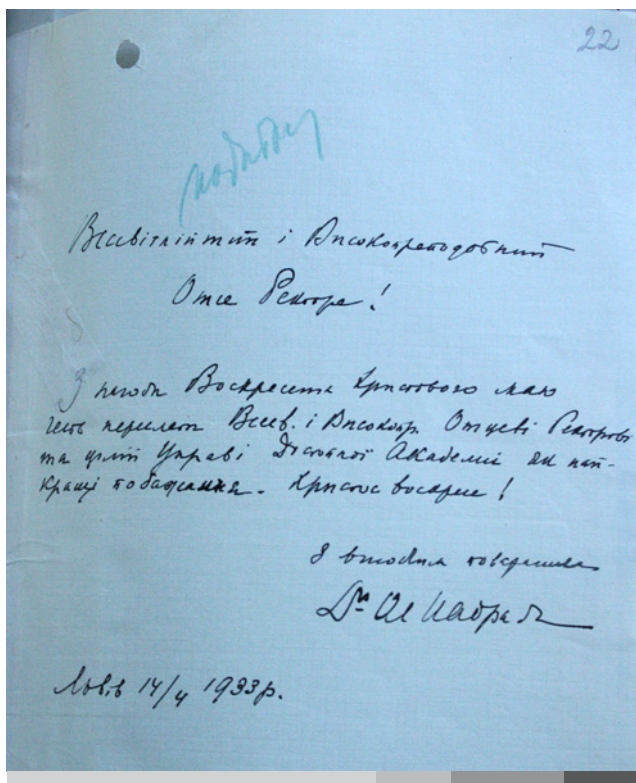 22
Всесвітлійший і Високопреподобний
Отче Ректоре!
З нагоди Воскресеня Христового маю
честь переслати Всев. і Високопр. Отцеві Ректорові
та цілій Управі Духовної Академії як най-
кращі побажання. Христос воскрес!
З виссоким поважаннєм
Др
Львів 14/4 1933 р.